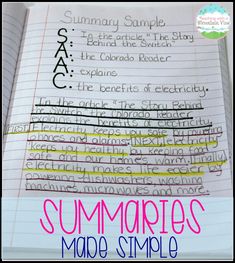 Teaching with a
Mountain View
Summary Sample
S: In the article, "The Story
Behind the Switch"
A: the Colorado Reader
A: explains
C: the benefits of electricity.
In the article "The Story Behind
the Switch" the Colorado Reader
explains the benefits of electricity.
FIRST Electricity keeps you safe by powering
phones and alarms. NEXT, electricity
keeps you healthy by keeping food
safe and our homes warm. Finally,
electricity makes life easier by
powering dishwashers, washing
machines, microwaves and more.
SUMMARIES
MADE SIMPLE